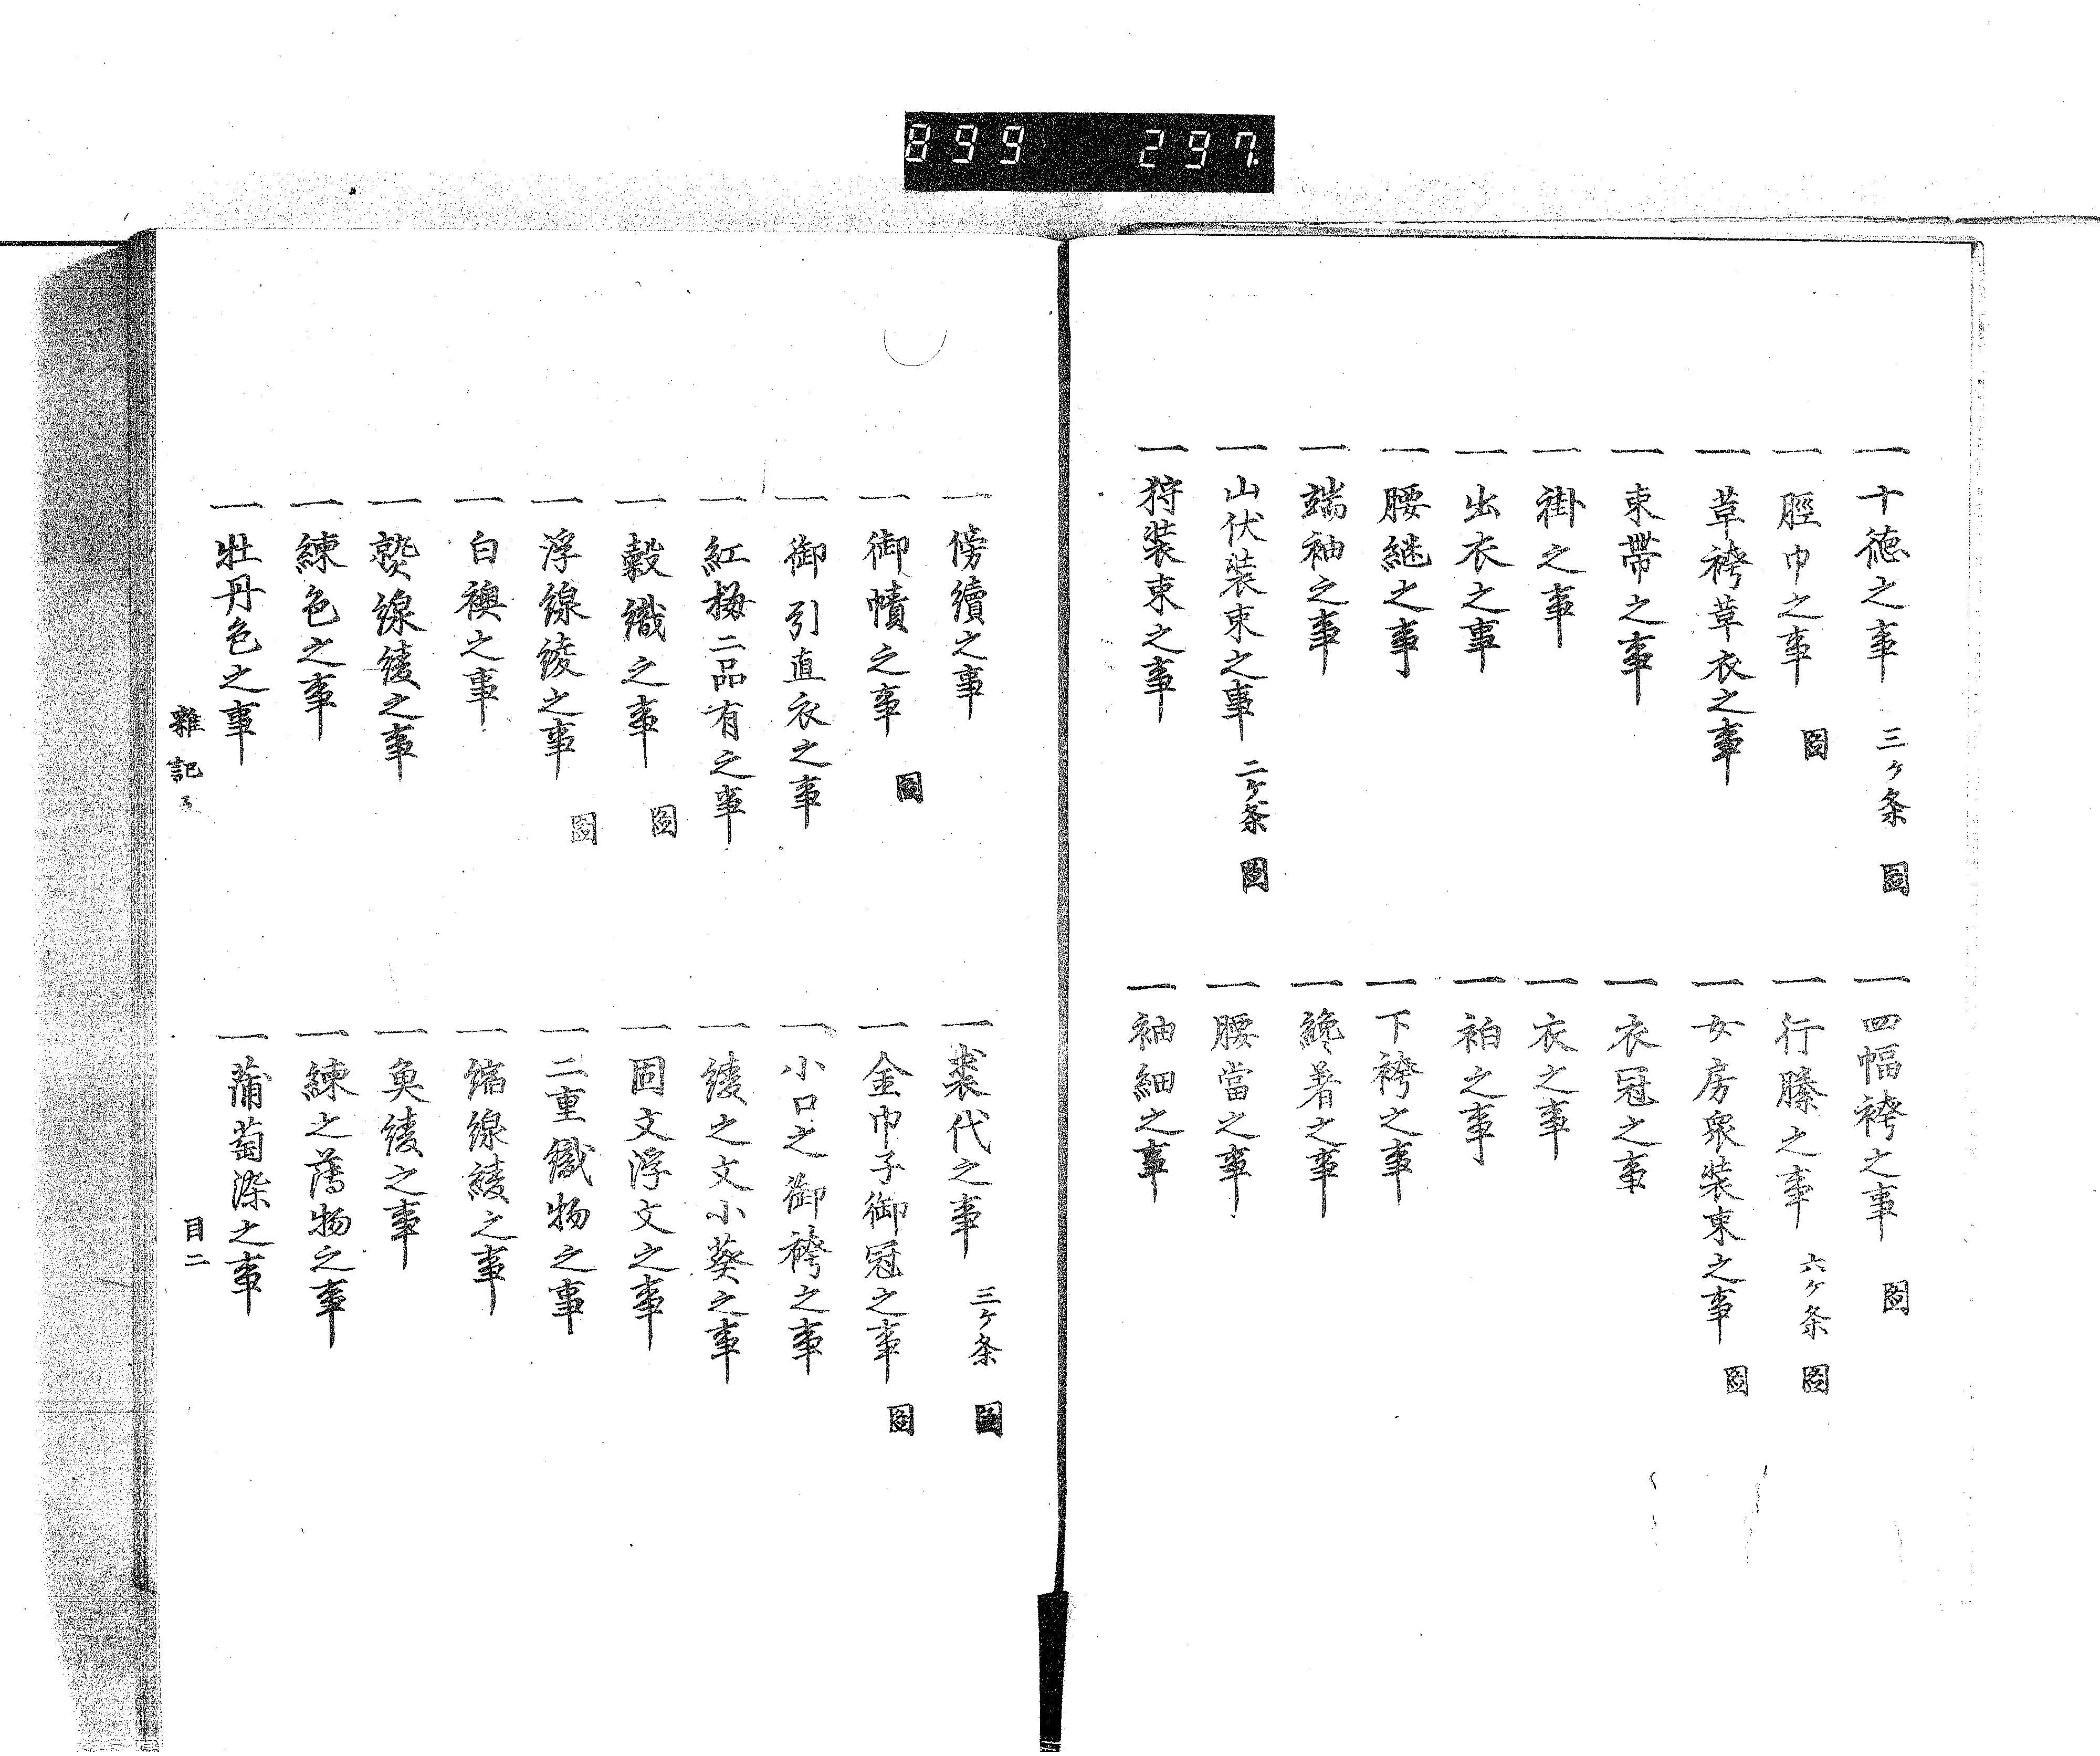 899 297.
一 十徳之事 三ケ条 圖
一 四幅袴之事 圖
一 脛巾之事 圖
一 行縢之事 六ケ条 圖
一 草袴草衣之事
一 女房衆装束之事 圖
一 束帯之事
一 衣冠之事
一 褂之事
一 衣之事
一 出衣之事
一 袙之事
一 腰継之事
一 下袴之事
一 端袖之事
一 纔著之事
一 山伏装束之事 二ケ条 圖
一 腰當之事
一 狩装束之事
一 袖細之事
一 傍續之事
一 裘代之事 三ケ条 圖
一 御幘之事 圖
一 金巾子御冠之事 圖
一 御引直衣之事
一 小口之御袴之事
一 紅梅二品有之事
一 綾之文小葵之事
一 縠織之事 圖
一 固文浮文之事
一 浮線綾之事 圖
一 二重織物之事
一 白襖之事
一 縮線綾之事
一 線綾之事
一 魚綾之事
一 練色之事
一 練之薄物之事
一 牡丹色之事
一 蒲萄染之事
雑記五
目二